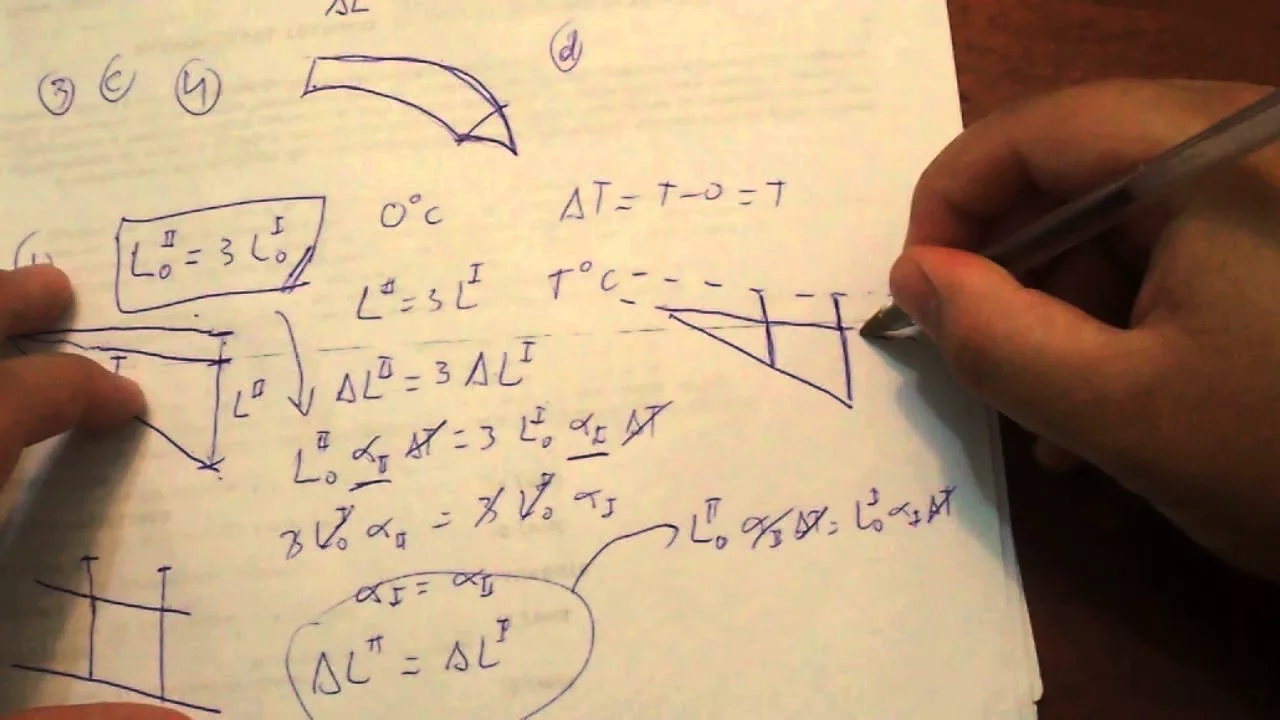 ΔL
③ c ④
d
L₀ᴵᴵ = 3 L₀ᴵ
0°C
ΔT = T-0 = T
Lᴵᴵ = 3 Lᴵ
T°C
ΔLᴵᴵ = 3 ΔLᴵ
Lᴵᴵ
L₀ᴵᴵ α_II ΔT = 3 L₀ᴵ α_I ΔT
3 L₀ᴵ α_II = 3 L₀ᴵ α_I
L₀ᴵᴵ α_I ΔT = L₀ᴵ α_I ΔT
α_I = α_II
ΔLᴵᴵ = ΔLᴵ